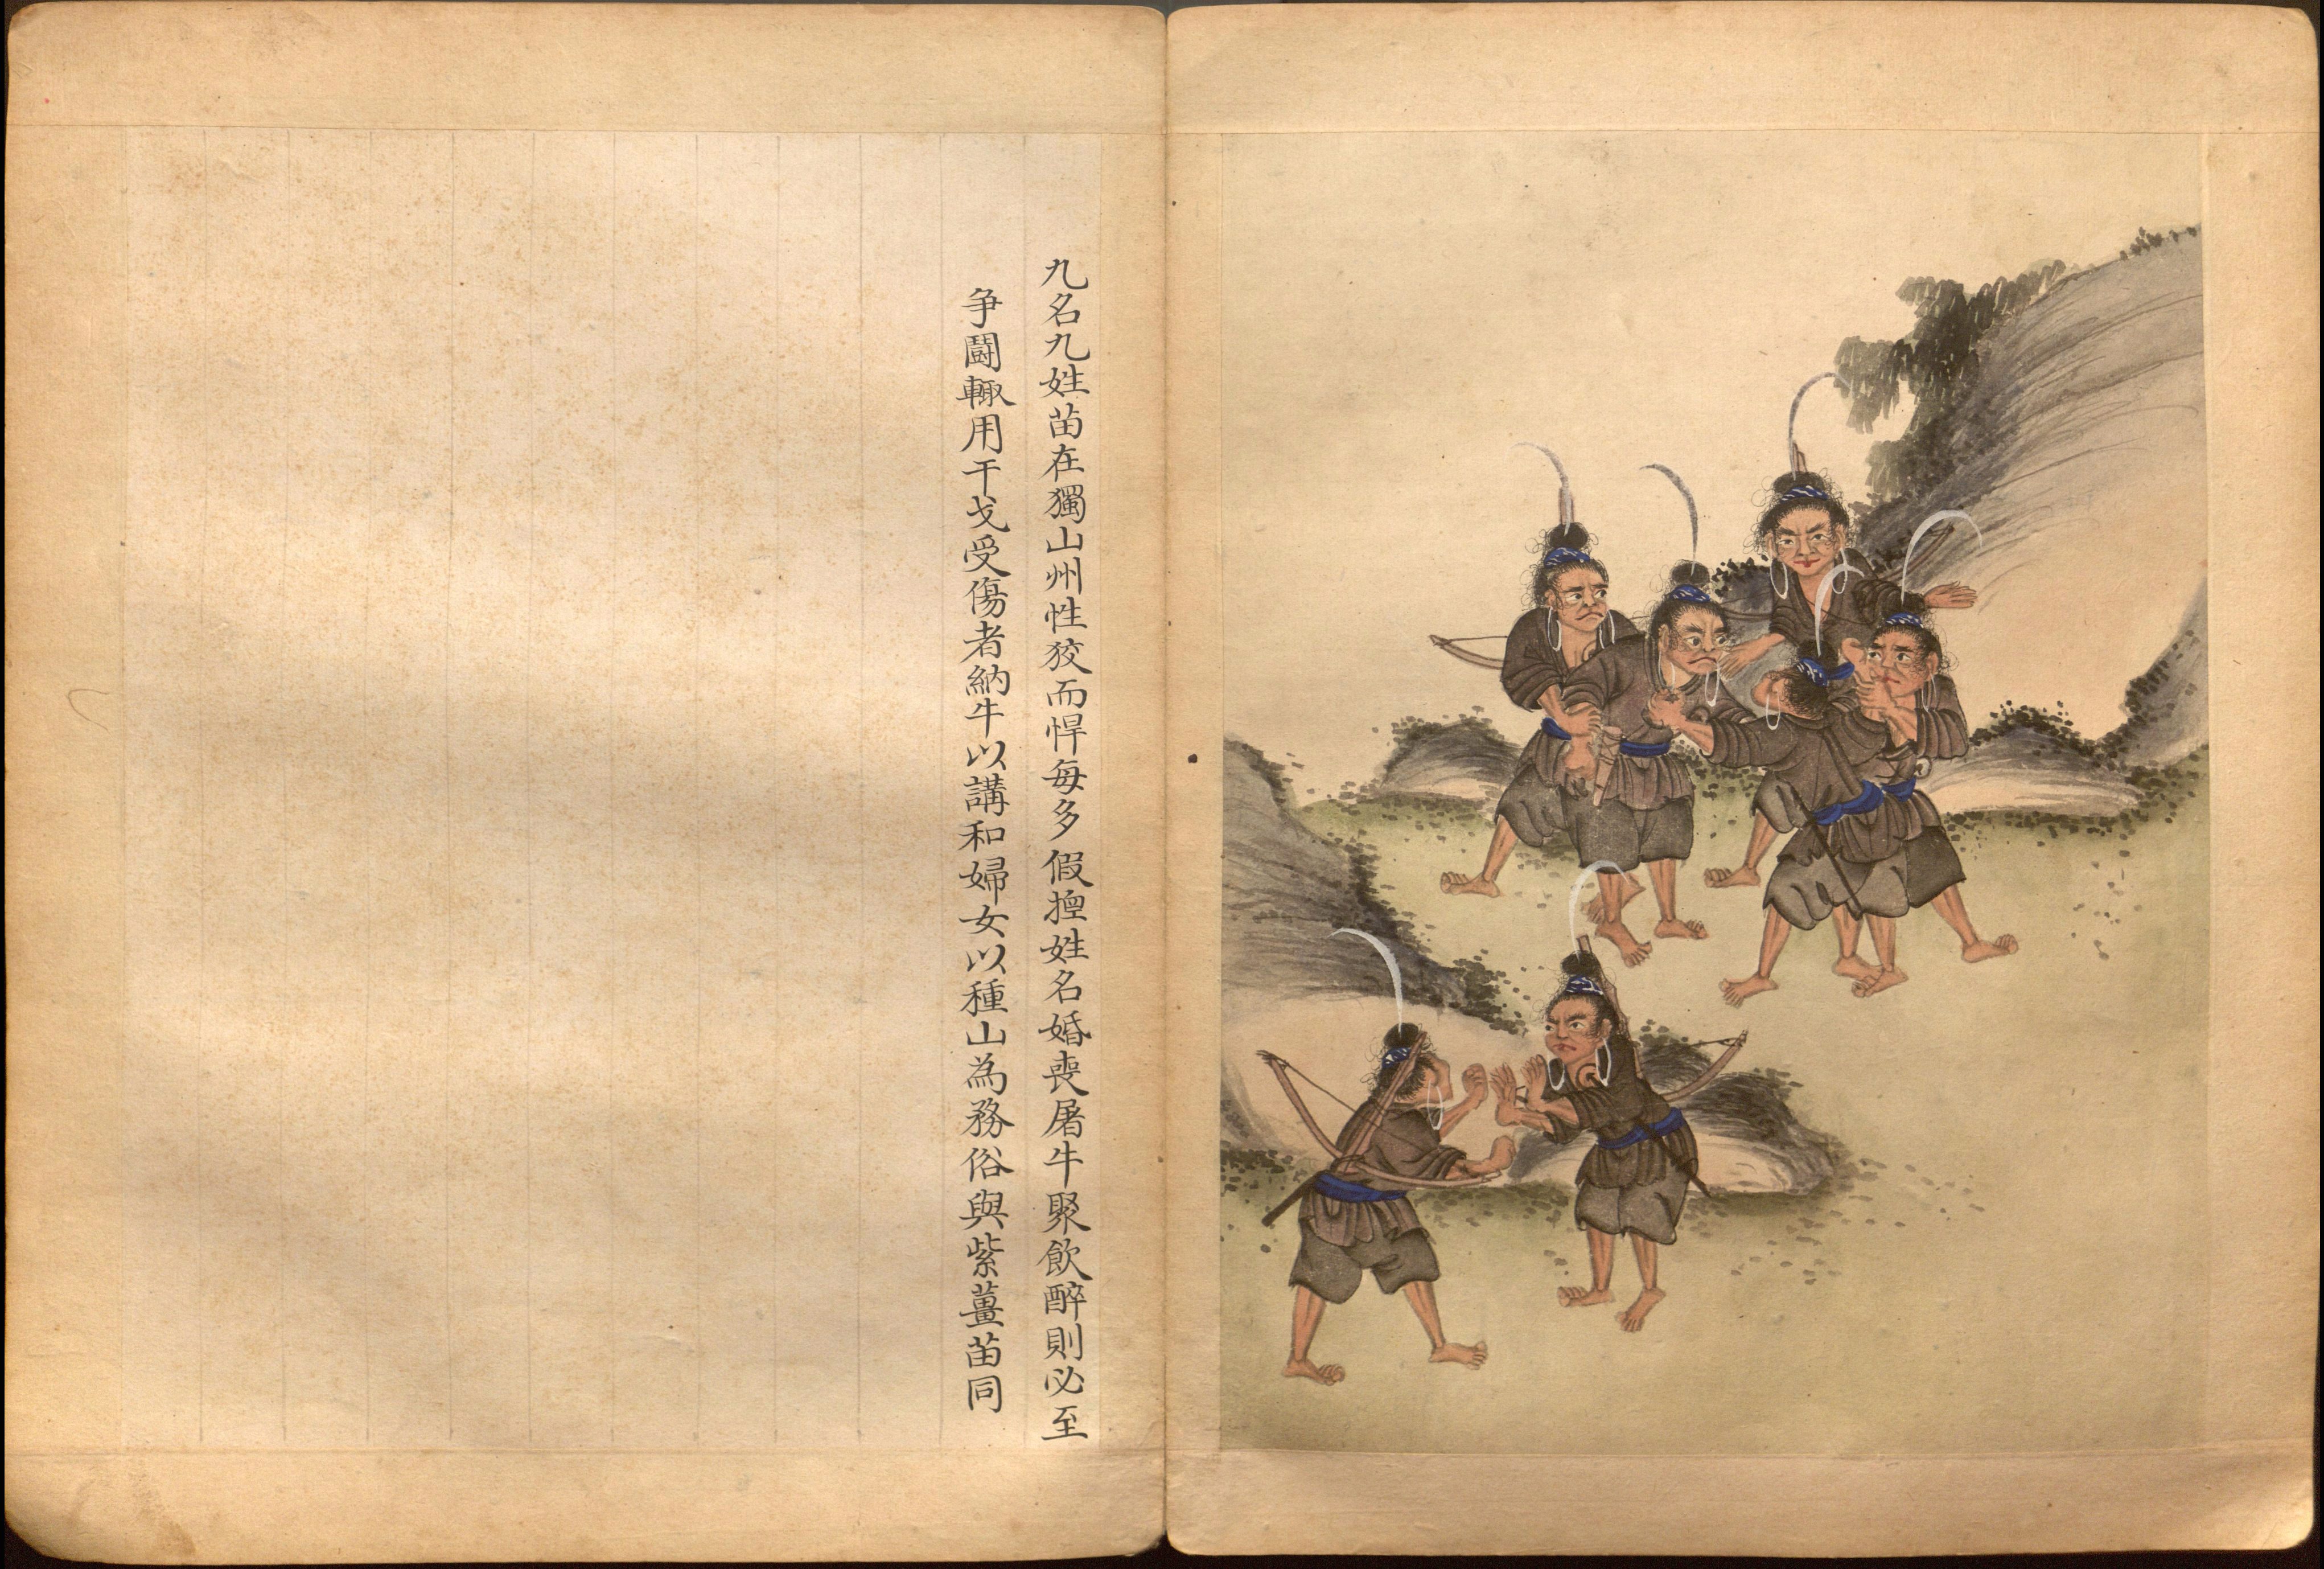 九名九姓苗在獨山州性狡而悍每多假揑姓名婚喪屠牛聚飲醉則必至
争鬪輙用干戈受傷者納牛以講和婦女以種山為務俗與紫薑苗同